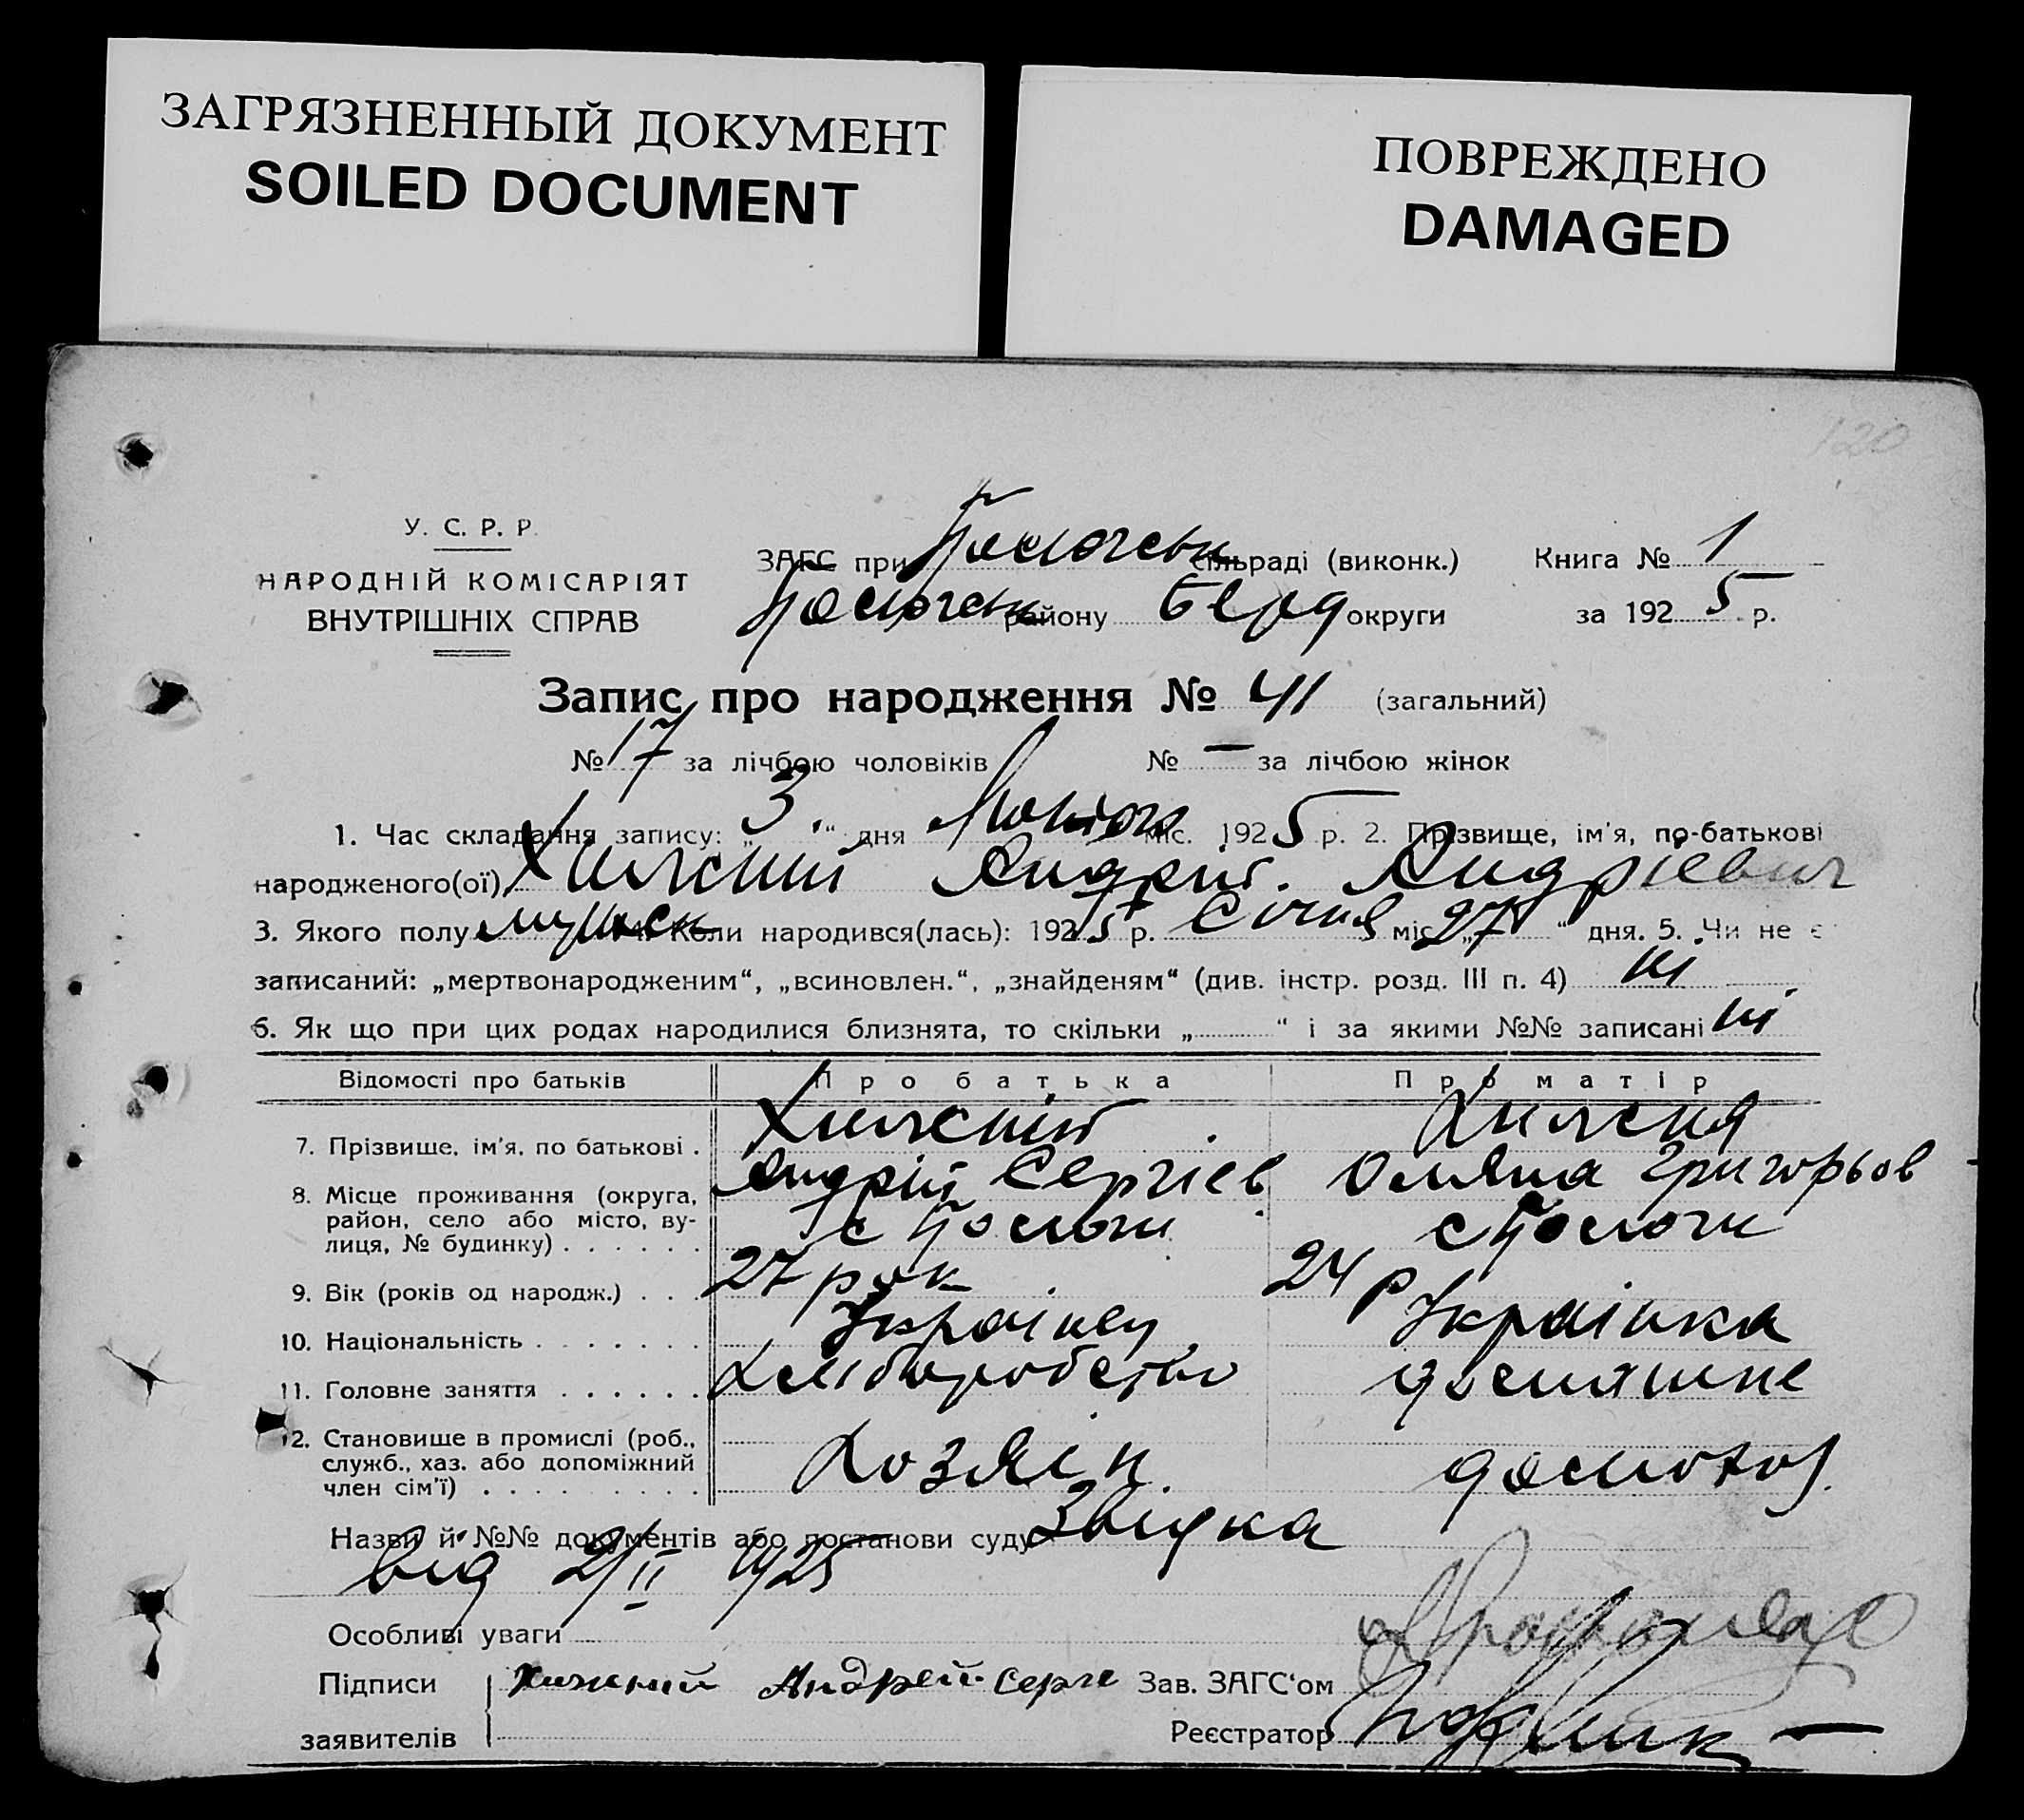 ЗАГРЯЗНЕННЫЙ ДОКУМЕНТ
SOILED DOCUMENT
ПОВРЕЖДЕНО
DAMAGED
120
У. С. Р. Р.
НАРОДНІЙ КОМІСАРІЯТ
ВНУТРІШНІХ СПРАВ
ЗАГС при сільраді (виконк.) Книга № 1
району Берд округи за 1925 р.
Запис про народження № 41 (загальний)
№ 17 за лічбою чоловіків № — за лічбою жінок
1. Час складання запису: „3“ дня міс. 1925 р. 2. Прізвище, ім'я, по-батькові
народженого(ої) Андрій Андрієвич
3. Якого полу мужск 4. Коли народився(лась): 1925 р. Січня міс. „27“ дня. 5. Чи не є
записаний: „мертвонародженим“, „всиновлен.“, „знайденям“ (див. інстр. розд. III п. 4) ні
6. Як що при цих родах народилися близнята, то скільки „ “ і за якими №№ записані ні
Відомості про батьків Про батька Про матір
7. Прізвище, ім'я, по батькові .
Андрій Сергієв Григорьов
8. Місце проживання (округа, район, село або місто, вулиця, № будинку) . . . . . .
9. Вік (років од народж.) . . . 27 рок 24 р
10. Національність . . . . . . . Українец Українка
11. Головне заняття . . . . . . Хліборобство домашнє
12. Становище в промислі (роб., служб., хаз. або допоміжний член сім'ї) . . . . . . . . . Хозяін
Назви й №№ документів або постанови суду Звідка
від 2/II 1925
Особливі уваги
Підписи Андрей Серги Зав. ЗАГС'ом
заявителів Реєстратор